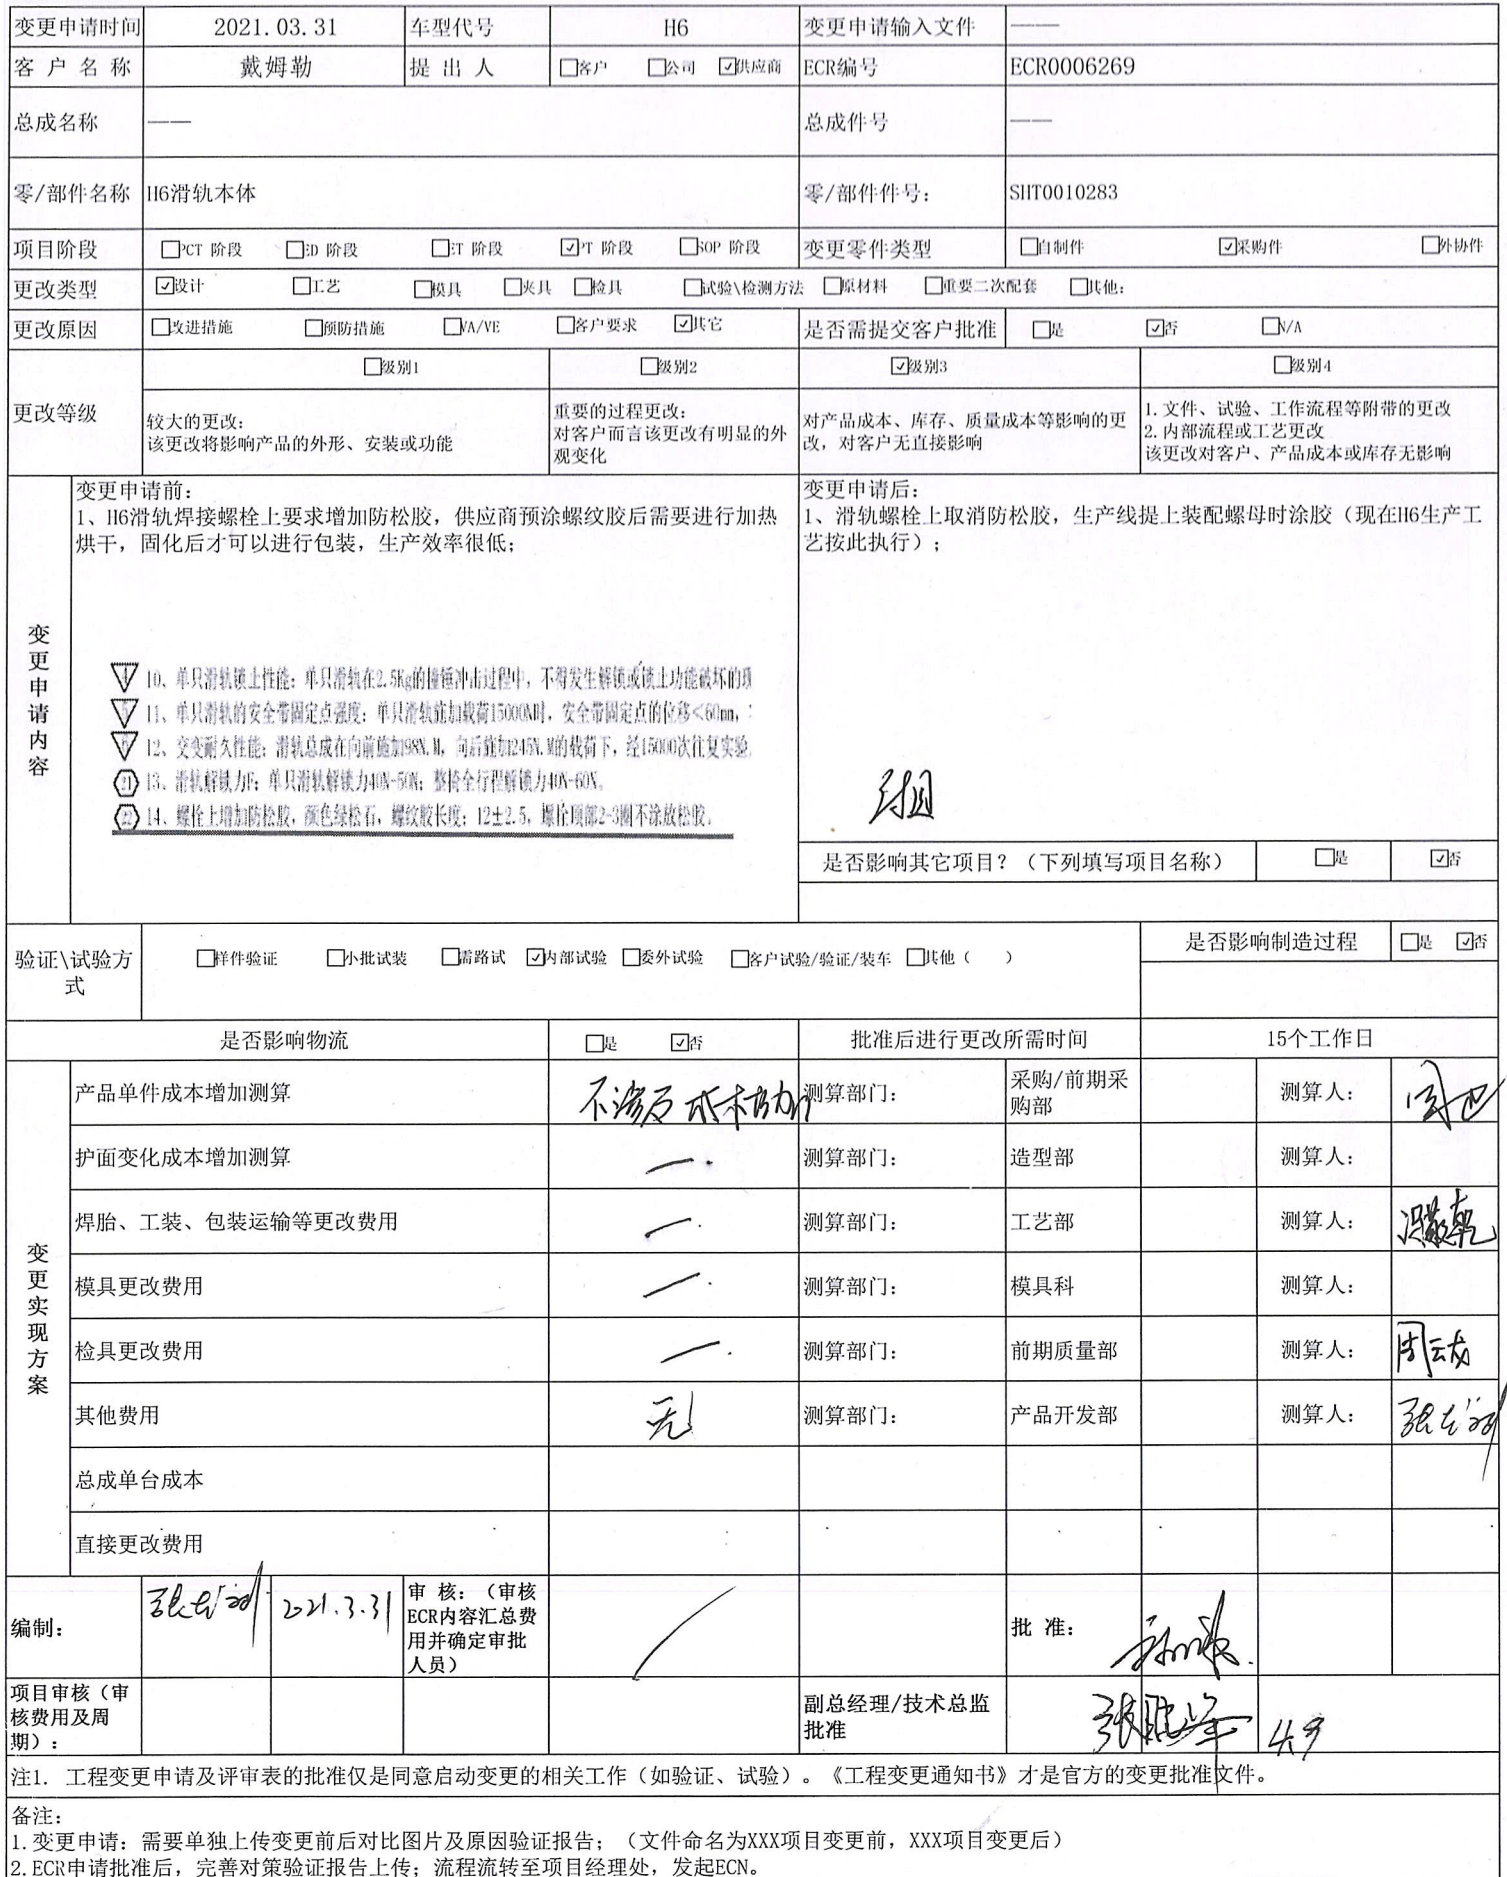 变更申请时间 2021.03.31 车型代号 H6 变更申请输入文件 ——
客户名称 戴姆勒 提出人 □客户 □公司 ☑供应商 ECR编号 ECR0006269
总成名称 —— 总成件号 ——
零/部件名称 H6滑轨本体 零/部件件号： SHT0010283
项目阶段 □PCT 阶段 □ED 阶段 □ET 阶段 ☑PT 阶段 □SOP 阶段 变更零件类型 □自制件 ☑采购件 □外协件
更改类型 ☑设计 □工艺 □模具 □夹具 □检具 □试验\检测方法 □原材料 □重要二次配套 □其他：
更改原因 □改进措施 □预防措施 □VA/VE □客户要求 ☑其它 是否需提交客户批准 □是 ☑否 □N/A
更改等级 □级别1 □级别2 ☑级别3 □级别4
较大的更改：
该更改将影响产品的外形、安装或功能
重要的过程更改：
对客户而言该更改有明显的外
观变化
对产品成本、库存、质量成本等影响的更
改，对客户无直接影响
1.文件、试验、工作流程等附带的更改
2.内部流程或工艺更改
该更改对客户、产品成本或库存无影响
变更申请内容
变更申请前：
1、H6滑轨焊接螺栓上要求增加防松胶，供应商预涂螺纹胶后需要进行加热
烘干，固化后才可以进行包装，生产效率很低；
10、单只滑轨锁止性能：单只滑轨在2.5Kg的撞锤冲击过程中，不得发生解锁或锁止功能破坏的现
11、单只滑轨的安全带固定点强度：单只滑轨施加载荷15000N时，安全带固定点的位移<60mm，
12、交变耐久性能：滑轨总成在向前施加198N.M，向后施加245N.M的载荷下，经15000次往复实验
21 13、滑轨解锁力F：单只滑轨解锁力40N-50N；整椅全行程解锁力40N-60N。
22 14、螺栓上增加防松胶，颜色绿松石，螺纹胶长度：12±2.5，螺栓顶部2-3圈不涂放松胶。
变更申请后：
1、滑轨螺栓上取消防松胶，生产线提上装配螺母时涂胶（现在H6生产工
艺按此执行）；
是否影响其它项目？（下列填写项目名称） □是 ☑否
验证\试验方式 □样件验证 □小批试装 □需路试 ☑内部试验 □委外试验 □客户试验/验证/装车 □其他（ ） 是否影响制造过程 □是 ☑否
是否影响物流 □是 ☑否 批准后进行更改所需时间 15个工作日
变更实现方案
产品单件成本增加测算 不涉及成本增加 测算部门： 采购/前期采购部 测算人：
护面变化成本增加测算 一 测算部门： 造型部 测算人：
焊胎、工装、包装运输等更改费用 一 测算部门： 工艺部 测算人：
模具更改费用 一 测算部门： 模具科 测算人：
检具更改费用 一 测算部门： 前期质量部 测算人： 周云龙
其他费用 无 测算部门： 产品开发部 测算人：
总成单台成本
直接更改费用
编制： 2021.3.31 审 核：（审核
ECR内容汇总费
用并确定审批
人员） 批 准：
项目审核（审
核费用及周
期）： 副总经理/技术总监
批准
注1. 工程变更申请及评审表的批准仅是同意启动变更的相关工作（如验证、试验）。《工程变更通知书》才是官方的变更批准文件。
备注：
1.变更申请：需要单独上传变更前后对比图片及原因验证报告；（文件命名为XXX项目变更前，XXX项目变更后）
2.ECR申请批准后，完善对策验证报告上传；流程流转至项目经理处，发起ECN。